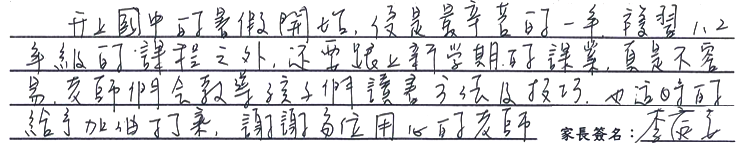 升上國中的暑假開始,便是最辛苦的一年,複習1、2
年級的課程之外,還要跟上新学期的課業,真是不容
易,老師們会教導孩子們讀書方法及技巧,也適時的
給予加油打氣,謝謝各位用心的老師 家長簽名:李